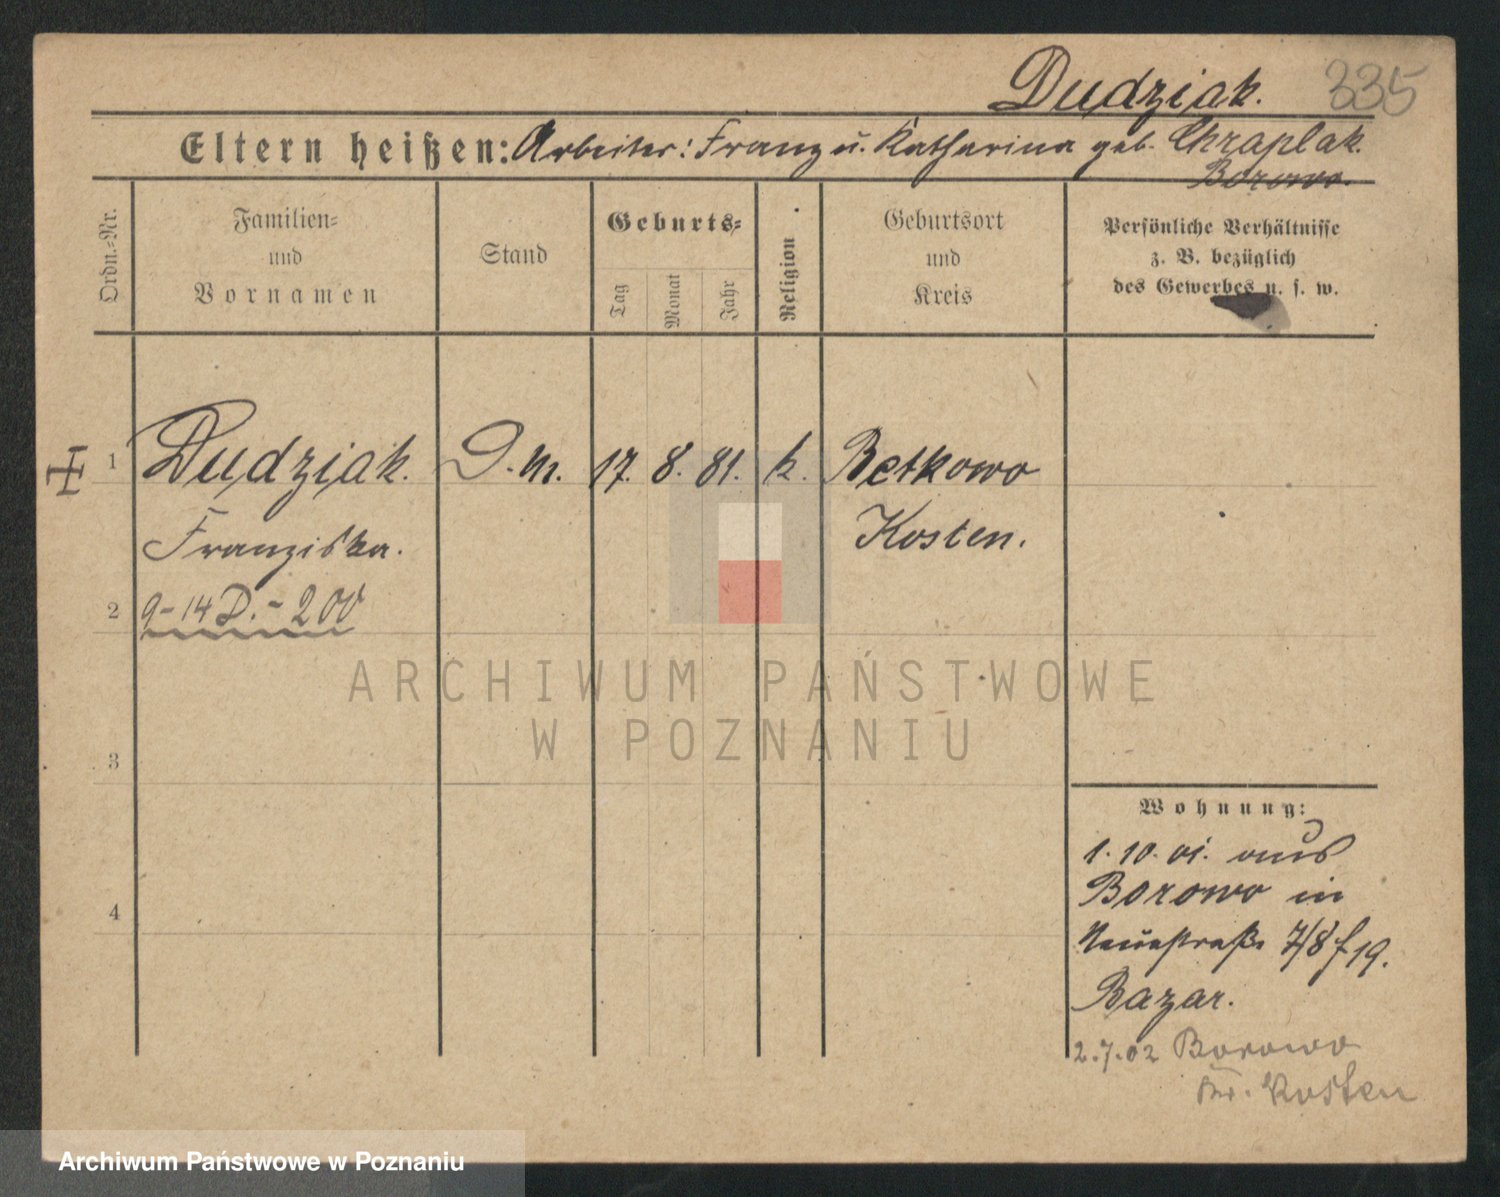 Dudziak. 335
Eltern heißen: Arbeiter: Franz u. Katharina geb. Chraplak.
Borowo.
Ordn.-Nr.
Familien-
und
Vornamen
Stand
Geburts-
Tag
Monat
Jahr
Religion
Geburtsort
und
Kreis
Persönliche Verhältnisse
z. B. bezüglich
des Gewerbes u. s. w.
1 Dudziak. D. M. 17. 8. 81. k. Betkowo
Franziska. Kosten.
2 9-14 D. - 200
ARCHIWUM PAŃSTWOWE
W POZNANIU
3
Wohnung:
1. 10. 01. aus
Borowo in
4
Neuestraße 7/8 f 19.
Bazar.
2.7.02 Borowo
Kr. Kosten
Archiwum Państwowe w Poznaniu